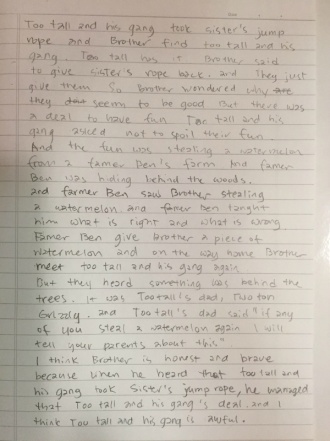 Too tall and his gang took sister's jump
rope and Brother find too tall and his
gang. Too tall has it Brother said
to give sister's rope back. and They just
give them So brother wondered why
they seem to be good But there was
a deal to have fun Too tall and his
gang not to spoil their fun.
And the fun was stealing a watermelon
from a famer Ben's farm And famer
Ben was hiding behind the woods.
and farmer Ben saw Brother stealing
a watermelon and famer Ben
him what is right and what is wrong
Famer Ben give Brother a piece of
watermelon and on the way home Brother
meet too tall and his gang again
But they heard something was behind the
trees. It was Too tall's dad, Two ton
Grizzly. and Too tall's dad said "if any
of you steal a watermelon again I will
tell your parents about this."
I think Brother is honest and brave
because when he heard that too tall and
his gang took Sister's jump rope, he managed
that Too tall and his gang's deal. and I
think Too tall and his gang is awful.